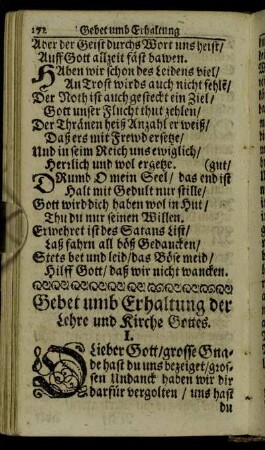 172 Gebet umb Erhaltung
Aber der Geist durchs Wort uns heist/
Auff Gott allzeit fäst bawen.
HAben wir schon des Leidens viel/
An Trost wirds auch nicht fehlẽ/
Der Noth ist auch gesteckt ein Ziel/
Gott unser Flucht thut zehlen/
Der Thränen heiß Anzahl er weiß/
Daß ers mit Frewd ersetze/
Und in seim Reich uns ewiglich/
Herrlich und wol ergetze. (gut/
DRumb O mein Seel/ das end ist
Halt mit Gedult nur stille/
Gott wird dich haben wol in Hut/
Thu du nur seinen Willen.
Erwehret ist des Satans List/
Laß fahrn all böß Gedancken/
Stets bet und leid/das Böse meid/
Hilff Gott/ daß wir nicht wancken.
Gebet umb Erhaltung der
Lehre und Kirche Gottes.
I.
O Lieber Gott/grosse Gna-
de hast du uns bezeiget/gros-
sen Undanck haben wir dir
darfür vergolten / uns hast
du